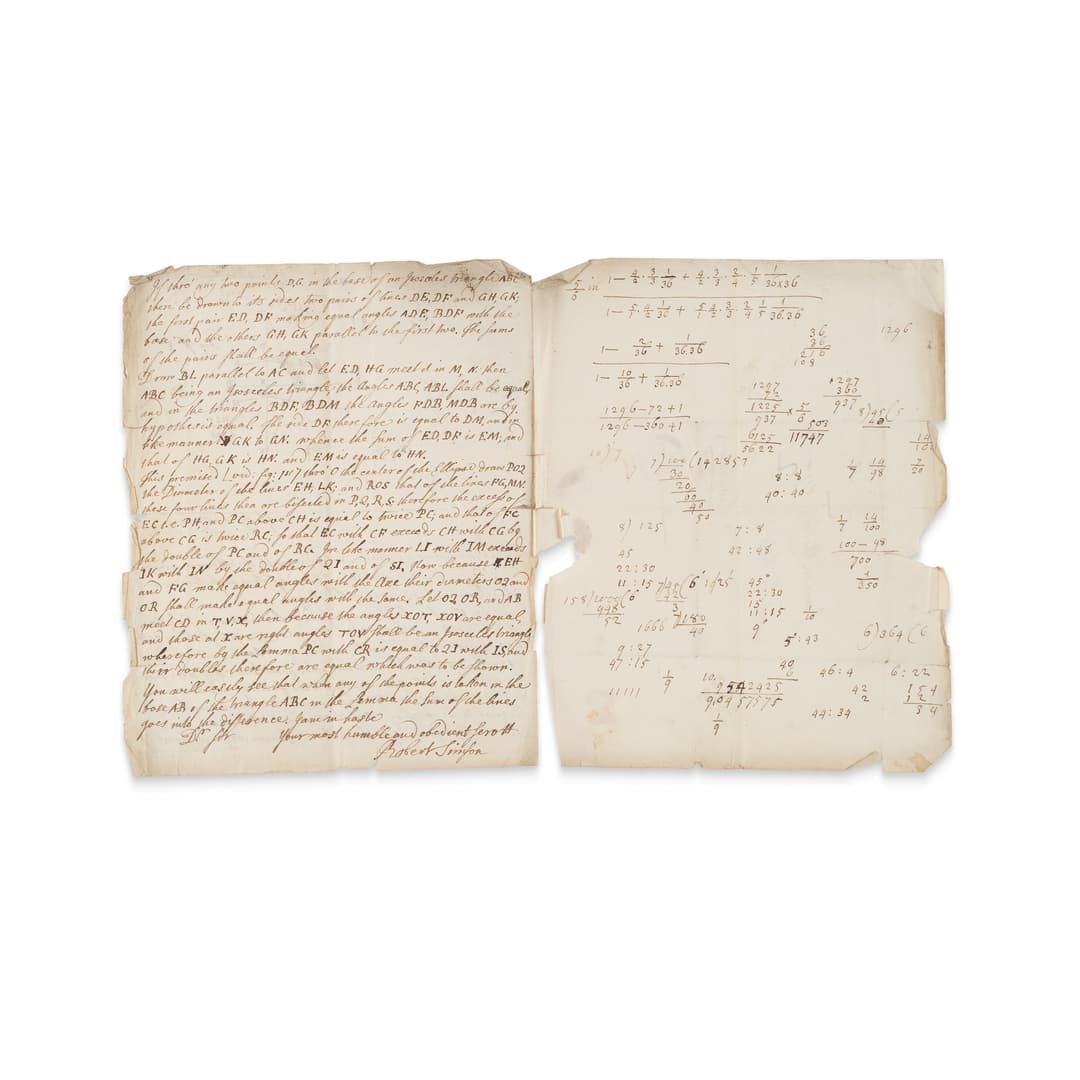 If thro' any two points D,G, in the base of an Isosceles triangle ABC
there be drawn to its sides two pairs of lines DE, DF and GH, GK;
the first pair ED, DF making equal angles ADE, BDF with the
base; and the others GH, GK parallel to the first two. The sums
of the pairs shall be equal.
Draw BL parallel to AC and let ED, HG meet it in M, N. then
ABC being an Isosceles triangle, the angles ABC, ABL shall be equal
and in the triangles BDF, BDM the angles FDB, MDB are by
hypothesis equal. the side DF therefore is equal to DM, and in
like manner GK to GN. whence the sum of ED, DF is EM; and
that of HG, GK is HN. and EM is equal to HN.
this premised (vid: fig: 1st) thro' O the center of the Ellipse draw POQ
the Diameter of the lines EH, LK; and ROS that of the lines FG, MN.
these four lines then are bisected in P, Q, R, S; therefore the excess of
EC i.e. PH, and PC above CH is equal to twice PC; and that of FC
above CG is twice RC; so that EC with CF exceeds CH with CG by
the double of PC and of RC. In like manner LI with IM exceeds
IK with IN by the double of QI and of SI. Now because EH
and FG make equal angles with the Axe their diameters OQ and
OR shall make equal angles with the same. Let OQ, OR, and AB
meet CD in T, V, X, then because the angles XOT, XOV are equal,
and those at X are right angles TOV shall be an Isosceles triangle
wherefore by the Lemma PC with CR is equal to QI with IS, and
their doubles therefore are equal which was to be shown.
You will easily see that when any of the points is taken in the
base AB of the triangle ABC in the Lemma the sum of the lines
goes into the difference. I am in haste
Dr Sir Your most humble and obedient Servtt
Robert Simson
5/6 in 1 — 4/2 · 3/3 1/36 + 4/2 · 3/3 · 2/4 · 1/5 1/36x36
1 — 5/1 · 4/2 1/36 + 5/1 · 4/2 · 3/3 · 2/4 1/5 1/36.36
1 — 2/36 + 1/36.36
1 — 10/36 + 1/36.36
36
36
216
108
1296
1296—72+1
1296—360+1
1297
72
1225
937
x 5/6
6125
5622
1297
360
937
503
11747
8)45(5
40
7)100(142857
30
20
60
40
50
8:8
40:40
1/7 14/98
7/20
8) 125
7:8
1/2 24/100
45
42:48
100—98
700
1/350
22:30
11:15
45°
22:30
11:15
158)1000(6
948
52
7)45(6
42
3
1666
7)180
40
9°
5:43
6)364(6
9:27
47:15
11111
1/9
10.
9542425
9,0457575
1/9
40
6
46:4
6:22
42
2
44:34
154
12
34